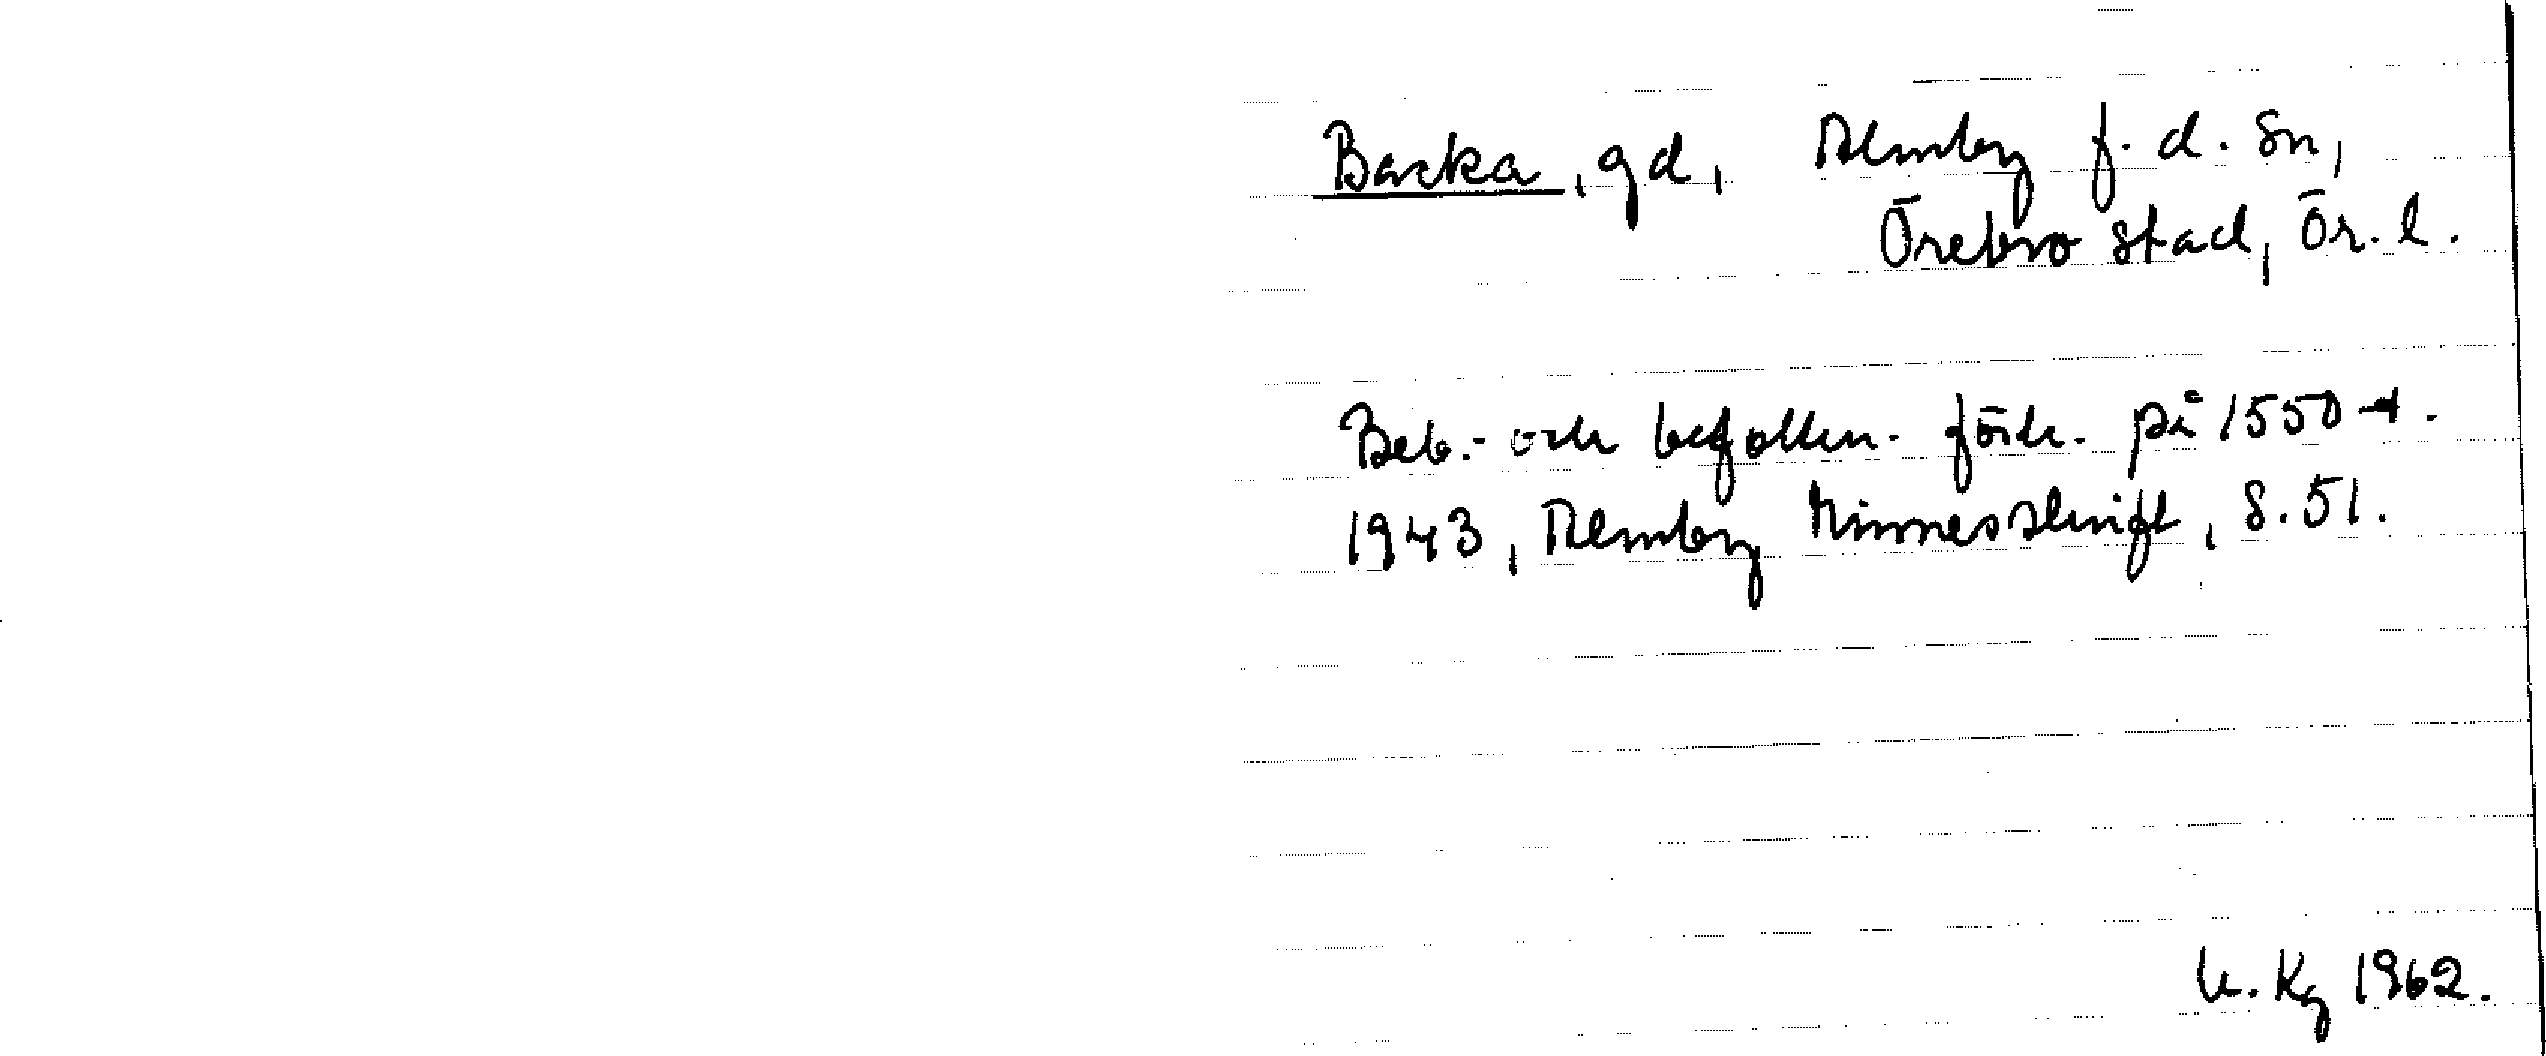 Backa, gd, Almby f.d. sn,
Örebro stad, Ör. l.
Beb.- och befolkn. förh. på 1550-t.
1943, Almby Minnesskrift, s. 51.
K. Kg 1962.